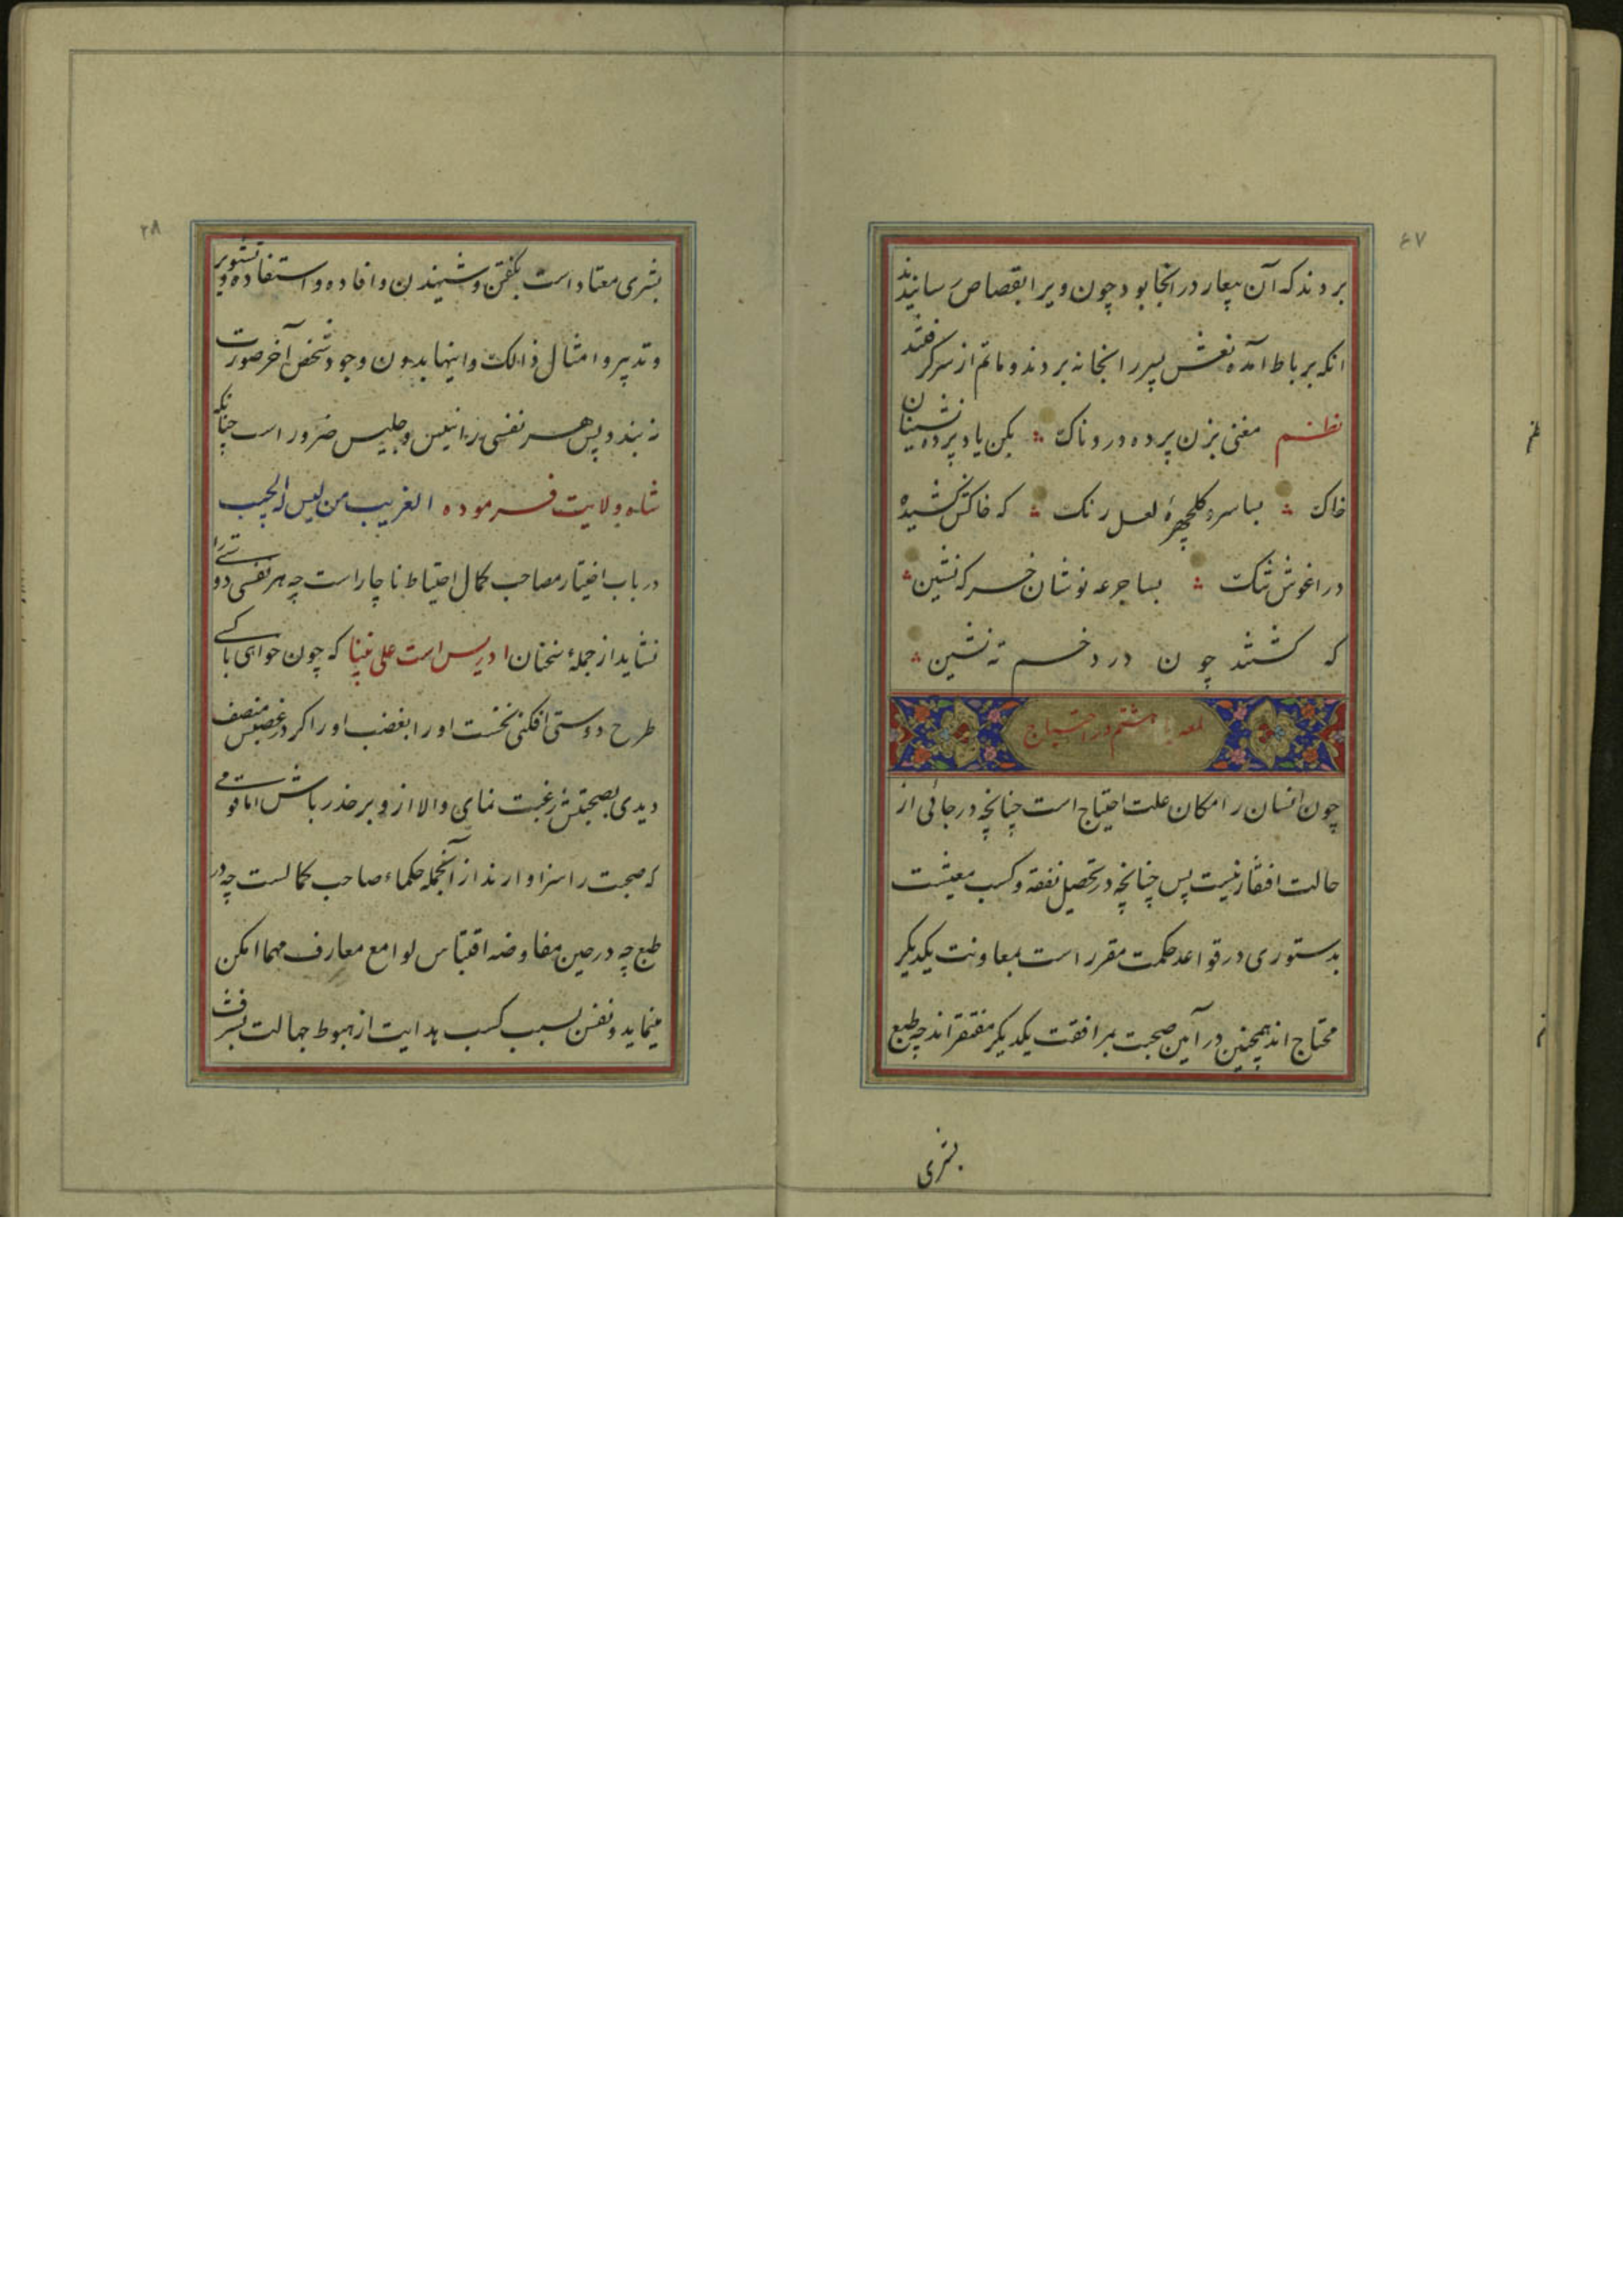 ۴۷
بردند که آن بیعار در انجا بود چون ویرا بقصاص رسانیدند
انکه برباط آمده نعش پسر را بخانه بردند و ماتم از سر گرفتند
نظم مغنی بزن پرده دردناک بکن یاد پرده نشینان
خاک بسا سرو گلچهرهٔ لعل رنک که خاکش کشیده
در اغوش تنک بسا جرعه نوشان خسرو نشین
که کشتند چون درد خم ته نشین
لمعه هشتم در احتیاج
چون انسان را مکان علت احتیاج است چنانچه در جائی از
حالت افتقار نیست پس چنانچه در تحصیل نفقه و کسب معیشت
بدستوری در قواعد حکمت مقرر است بمعاونت یکدیکر
محتاج اند همچنین در آیین صحبت بمرافقت یکدیکر مفتقراند چه طبع
بشری
۲۸
بشری معتاد است بکفتن و شنیدن و افاده و استفاده و تشویر
و تدبیر و امثال ذالک و اینها بدون وجود شخص آخر صورت
نه بندد پس هر نفسی را انیس و جلیس ضرور است چنانکه
شاه ولایت فرموده الغریب من لیس له الحبیب
در باب اختیار مصاحب کمال احتیاط ناچار است چه هر نفسی دوستی را
نشاید از جملهٔ سخنان ادریس است علی نبینا که چون خواهی با کسی
طرح دوستی افکنی نخست او را بغضب اور اکر در غضبش منصف
دیدی بصحبتش رغبت نمای والا از و بر حذر باش اما قومی
که صحبت را سزاوارند از آنجمله حکماء صاحب کمالست چه در
طبع چه در حین مفاوضه اقتباس لوامع معارف مهما امکن
مینماید و نفس بسبب کسب هدایت از هبوط جهالت بشرف